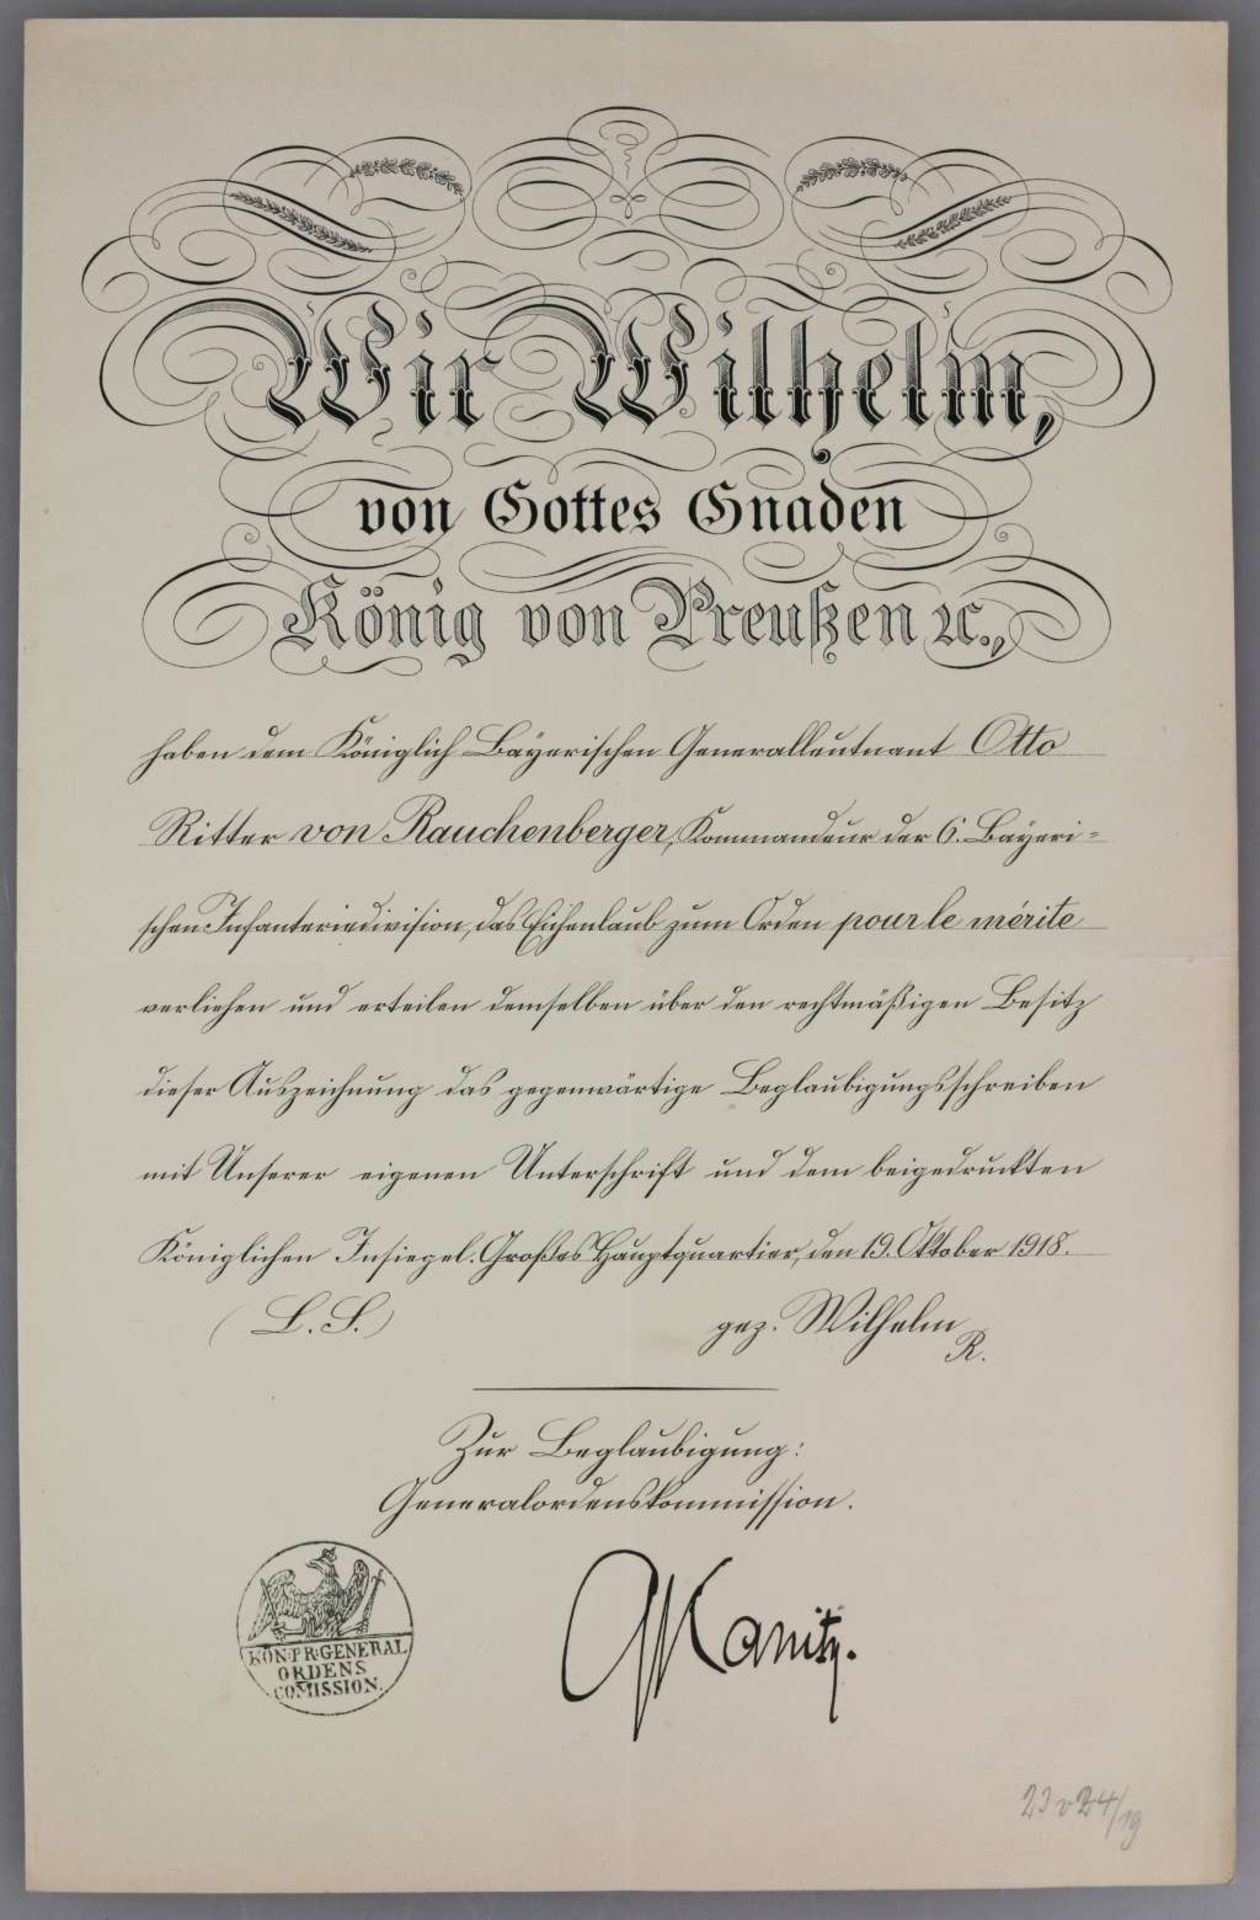 Wir Wilhelm,
von Gottes Gnaden
König von Preußen ꝛc.,
haben dem Königlich Bayerischen Generalleutnant Otto
Ritter von Rauchenberger, Kommandeur der 6. Bayeri=
schen Infanteriedivision, das Eichenlaub zum Orden pour le mérite
verliehen und erteilen demselben über den rechtmäßigen Besitz
dieser Auszeichnung das gegenwärtige Beglaubigungsschreiben
mit Unserer eigenen Unterschrift und dem beigedruckten
Königlichen Insiegel. Großes Hauptquartier, den 19. Oktober 1918.
(L. S.) gez. Wilhelm
R.
Zur Beglaubigung:
Generalordenskommission.
KÖN: PR: GENERAL
ORDENS
COMISSION.
Kanitz.